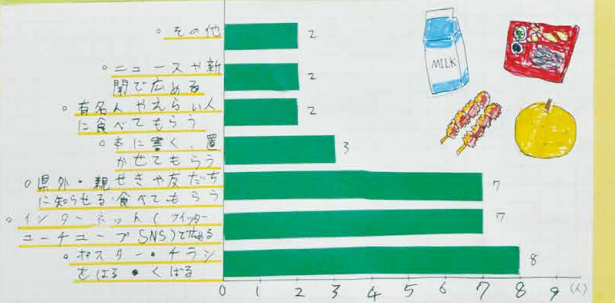 。その他
2
。ニュースや新
聞で広める
2
。有名人やえらい人
に食べてもらう
2
。本に書く、置
かせてもらう
3
。県外・親せきや友だち
に知らせる食べてもらう
7
。インターネット(ツイッター
ユーチューブSNS)で広める
7
。ポスター・チラシ
をはる・くばる
8
0 1 2 3 4 5 6 7 8 9 (人)
MILK